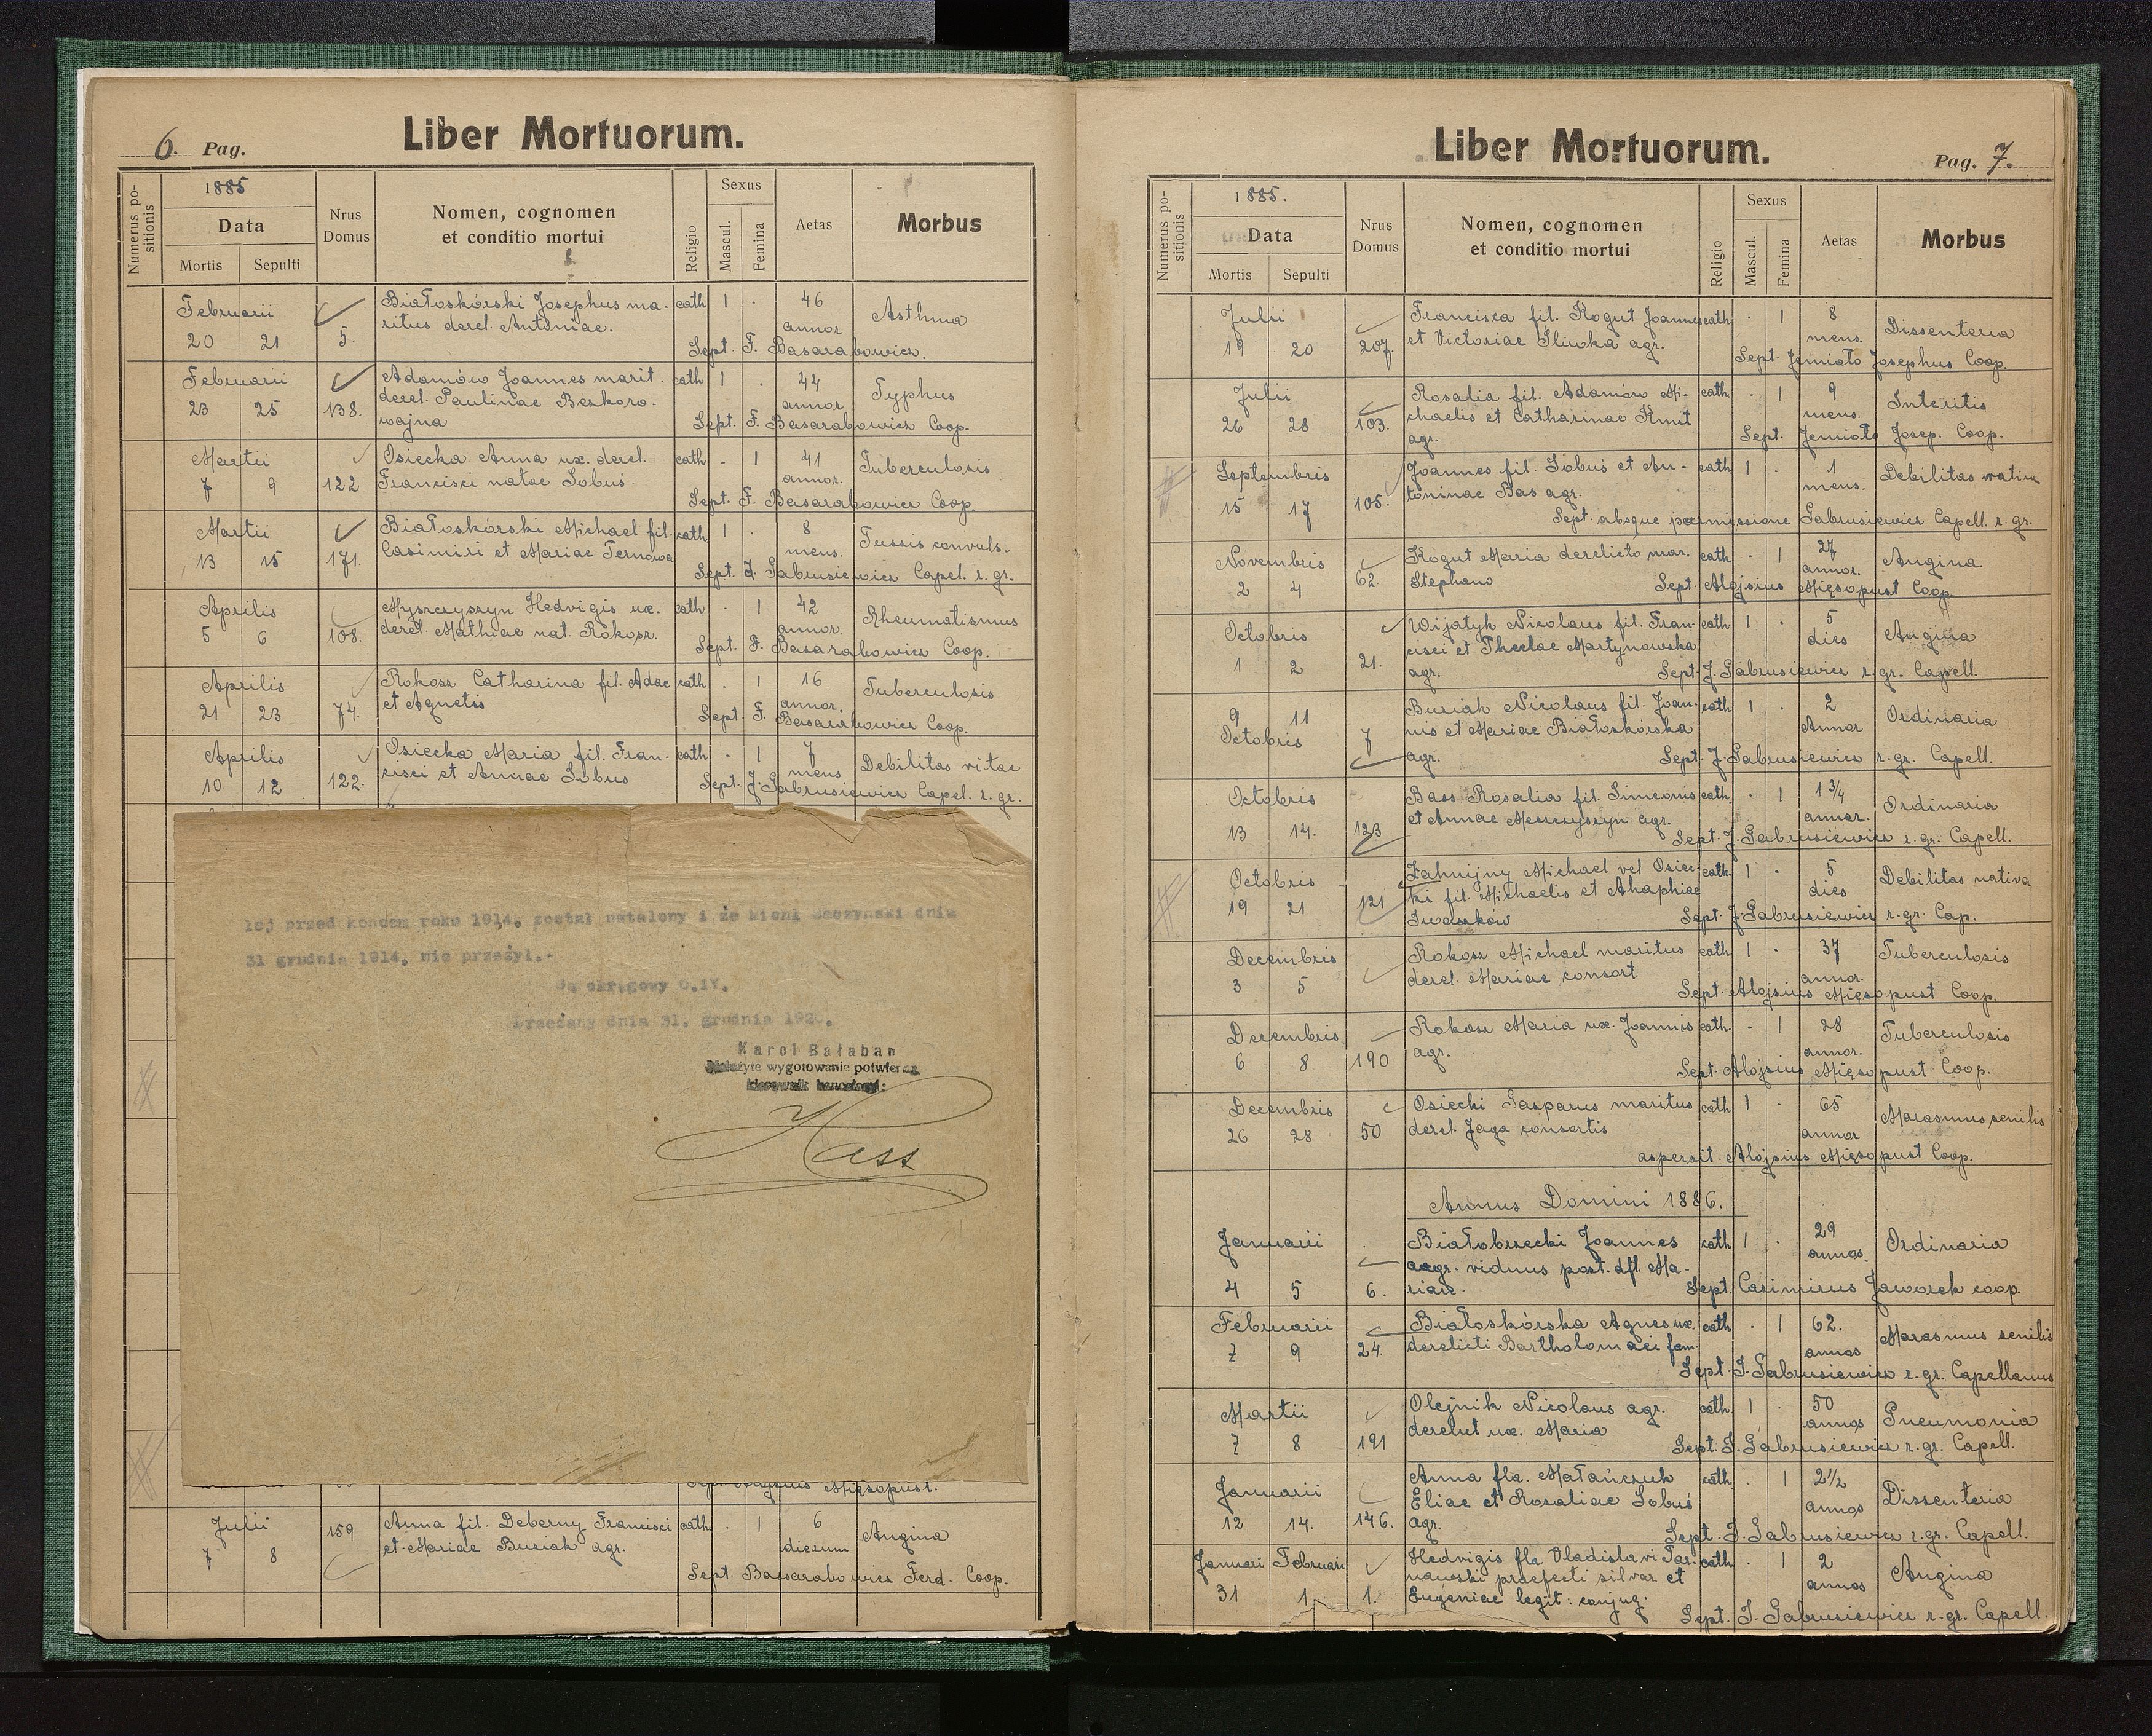 6. Pag.
Liber Mortuorum.
Numerus positionis
1885
Data
Mortis Sepulti
Nrus Domus
Nomen, cognomen
et conditio mortui
Religio
Sexus
Mascul. Femina
Aetas
Morbus
Februarii Białoskórski Josephus ma- cath 1 · 46 Asthma
20 21 5. ritus derel. Antoniae. annor
Sept. F. Basarabowicz.
Februarii Adamów Joannes marit. cath 1 · 44 Typhus
23 25 138. derel. Paulinae Bezkoro- annor
wajna Sept. F. Basarabowicz Coop.
Martii Osiecka Anna ux. derel. cath - 1 41 Tuberculosis
7 9 122 Francisci natae Sobuś annor.
Sept. F. Basarabowicz Coop.
Martii Białoskórski Michael fil. cath 1 · 8 Tussis convuls.
13 15 171. Casimiri et Mariae Ternowa mens.
Sept. J. Gabrusiewicz Capel. r. gr.
Aprilis Myszczyszyn Hedvigis ux. cath · 1 42 Rheumatismus
5 6 108. derel. Mathiae nat. Rokosz. annor.
Sept. F. Basarabowicz Coop.
Aprilis Rokosz Catharina fil. Adae cath . 1 16 Tuberculosis
21 23 74. et Agnetis annor.
Sept. F. Basarabowicz Coop.
Aprilis Osiecka Maria fil. Fran- cath - 1 7 Debilitas vitae
10 12 122. cisci et Annae Sobus mens
Sept. J. Gabrusiewicz Capel. r. gr.
lej przed końcem roku 1914, został ustalony i że Michł Baczyński dnia
31 grudnia 1914, nie przeżył.-
Sąd okręgowy O.IV.
Brzeżany dnia 31. grudnia 1920.
Karol Bałaban
Należyte wygotowanie potwierdza
kierownik kancelarji:
Hass
Sept. Alojsius Mięsopust.
Julii Anna fil. Deberny Francisci cath · 1 6 Angina
7 8 159 et Mariae Buziak agr. dierum
Sept. Bassarabowicz Ferd. Coop.
Liber Mortuorum.
Pag. 7.
Numerus positionis
1885.
Data
Mortis Sepulti
Nrus Domus
Nomen, cognomen
et conditio mortui
Religio
Sexus
Mascul. Femina
Aetas
Morbus
Julii Francisca fil. Kogut Joannes cath · 1 8 Dissenteria
19 20 207. et Victoriae Śliwka agr. mens.
Sept. Jemioło Josephus Coop.
Julii Rosalia fil. Adamów Mi- cath · 1 9 Interitis
26 28 103. chaelis et Catharinae Kmit mens.
agr. Sept. Jemioło Josep. Coop.
Septembris Joannes fil. Sobuś et An- cath 1 · 1 Debilitas nativa
15 17 105. toninae Bas agr. mens.
Sept. absque permissione Gabrusiewicz Capell. r. gr.
Novembris Kogut Maria derelicto mar. cath · 1 27 Angina
2 4 62. Stephano annor.
Sept. Alojsius Mięsopust Coop.
Octobris Wijatyk Nicolaus fil. Fran- cath 1 · 5 Angina
1 2 21. cisci et Theclae Martynowska dies
agr. Sept. J. Gabrusiewicz r. gr. Capell.
9 11 Buziak Nicolaus fil. Joan- cath 1 · 2 Ordinaria
Octobris 7 nis et Mariae Białoskórska Annor
agr. Sept. J. Gabrusiewicz r. gr. Capell.
Octobris Bass Rosalia fil. Simeonis cath · 1 1 3/4 Ordinaria
13 14. 123 et Annae Mszczyszyn agr. annor.
Sept. J. Gabrusiewicz r. gr. Capell.
Octobris Zahnijny Michael vel Osiec- cath 1 · 5 Debilitas nativa
19 21 121 ki fil. Michaelis et Ahaphiae dies
Iwaszków Sept. J. Gabrusiewicz r. gr. Cap.
Decembris Rokosz Michael maritus cath 1 · 37 Tuberculosis
3 5 derel. Mariae consort. annor.
Sept. Alojsius Mięsopust Coop.
Decembris Rokosz Maria ux. Joannis cath. - 1 28 Tuberculosis
6 8 190 agr. annor.
Sept. Alojsius Mięsopust Coop.
Decembris Osiecki Gasparus maritus cath 1 · 65 Marasmus senilis
26 28 50 derel. Jaga consortis annor
aspersit. Alojsius Mięsopust Coop.
Annus Domini 1886.
Januarii Białobrzecki Joannes cath 1 · 29 Ordinaria
agr. viduus post. dft. Ma- annos
4 5 6. riae. Sept. Casimirus Jaworek coop.
Februarii Białoskórska Agnes ux. cath · 1 62. Marasmus senilis
7 9 24. derelicti Bartholomaei fam. annos
Sept. J. Gabrusiewicz r. gr. Capellanus
Martii Olejnik Nicolaus agr. cath. 1 · 50 Pneumonia
7 8 191 derelict ux. Maria annos
Sept. J. Gabrusiewicz r. gr. Capell.
Januarii Anna fla. Matańczuk cath · 1 2 1/2 Dissenteria
Eliae et Rosaliae Sobuś annos
12 14. 146. agr. Sept. J. Gabrusiewicz r. gr. Capell.
Januari Februari Hedvigis fla Vladislavi Tar- cath · 1 2 Angina
nawski praefecti silvar. et annos
31 1 1. Eugeniae legit: conjug.
Sept. J. Gabrusiewicz r. gr. Capell.